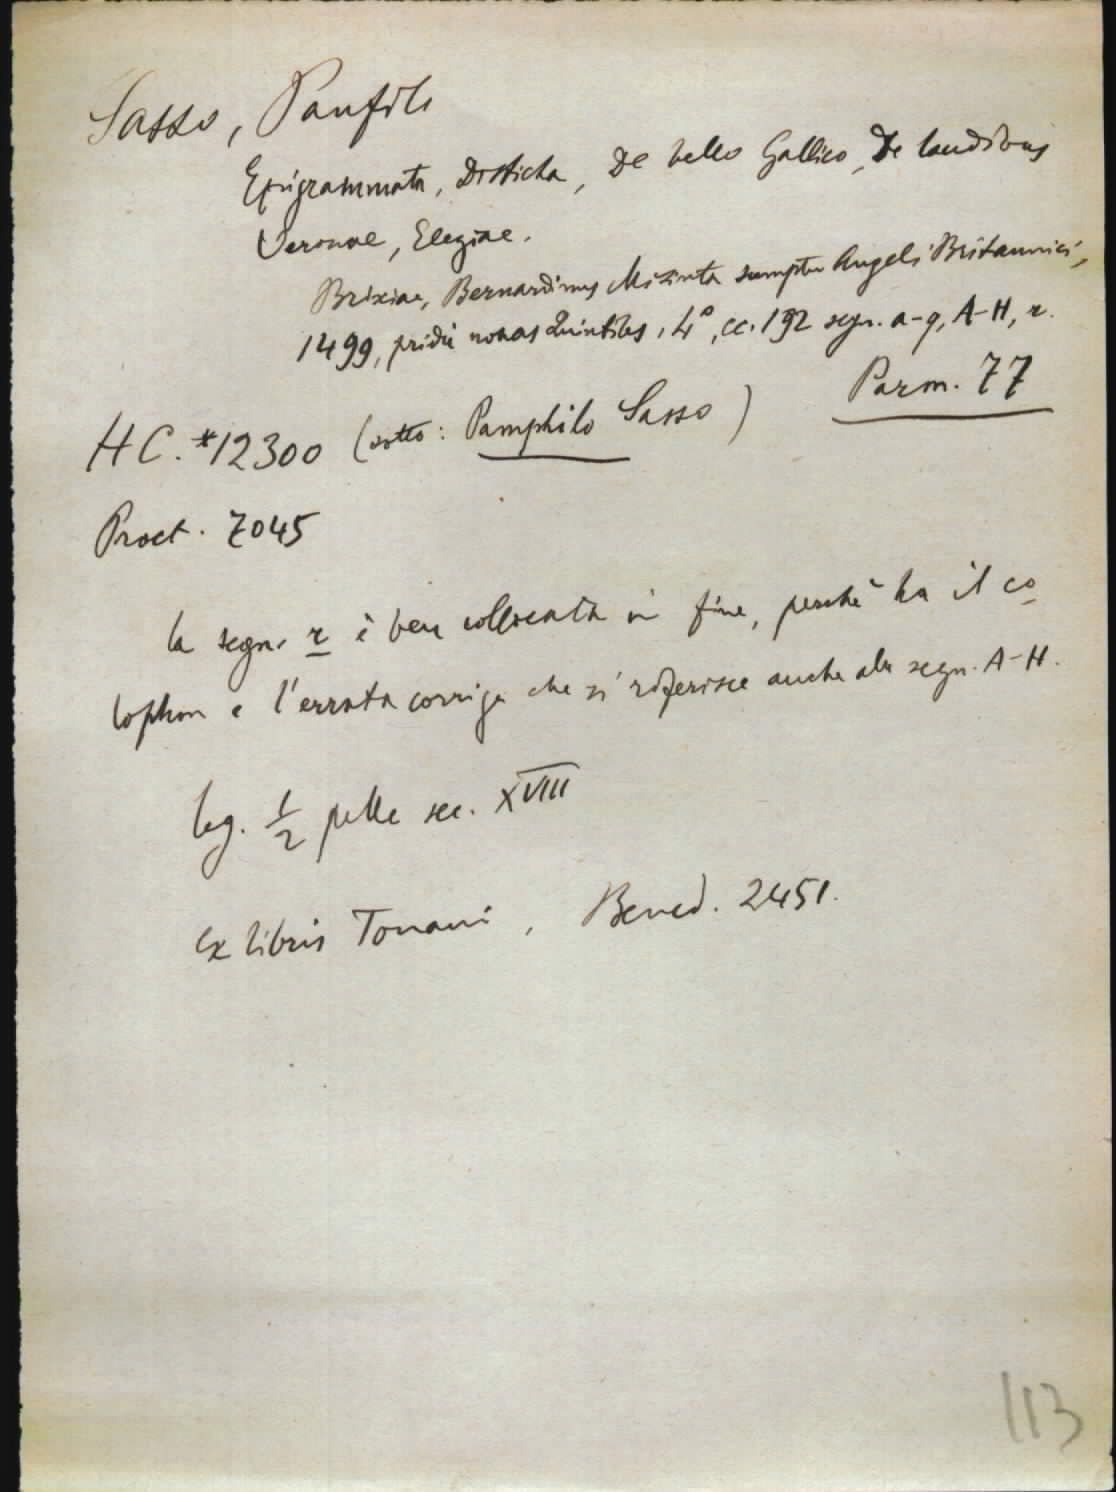 Sasso, Panfilo
Epigrammata, Disticha, De bello Gallico, De laudibus
Veronae, Elegiae.
Brixiae, Bernardinus Misinta sumptu Angeli Britannici,
1499, pridie nonas Quintiles, 4°, cc. 192 segn. a-q, A-H, r.
Parm. 77
HC. *12300 (sotto: Pamphilo Sasso)
Proct. 7045
la segn. r è ben collocata in fine, perchè ha il co
lophon e l'errata corrige che si riferisce anche alle segn. A-H.
leg. 1/2 pelle sec. XVIII
ex libris Tonani, Bened. 2451.
113